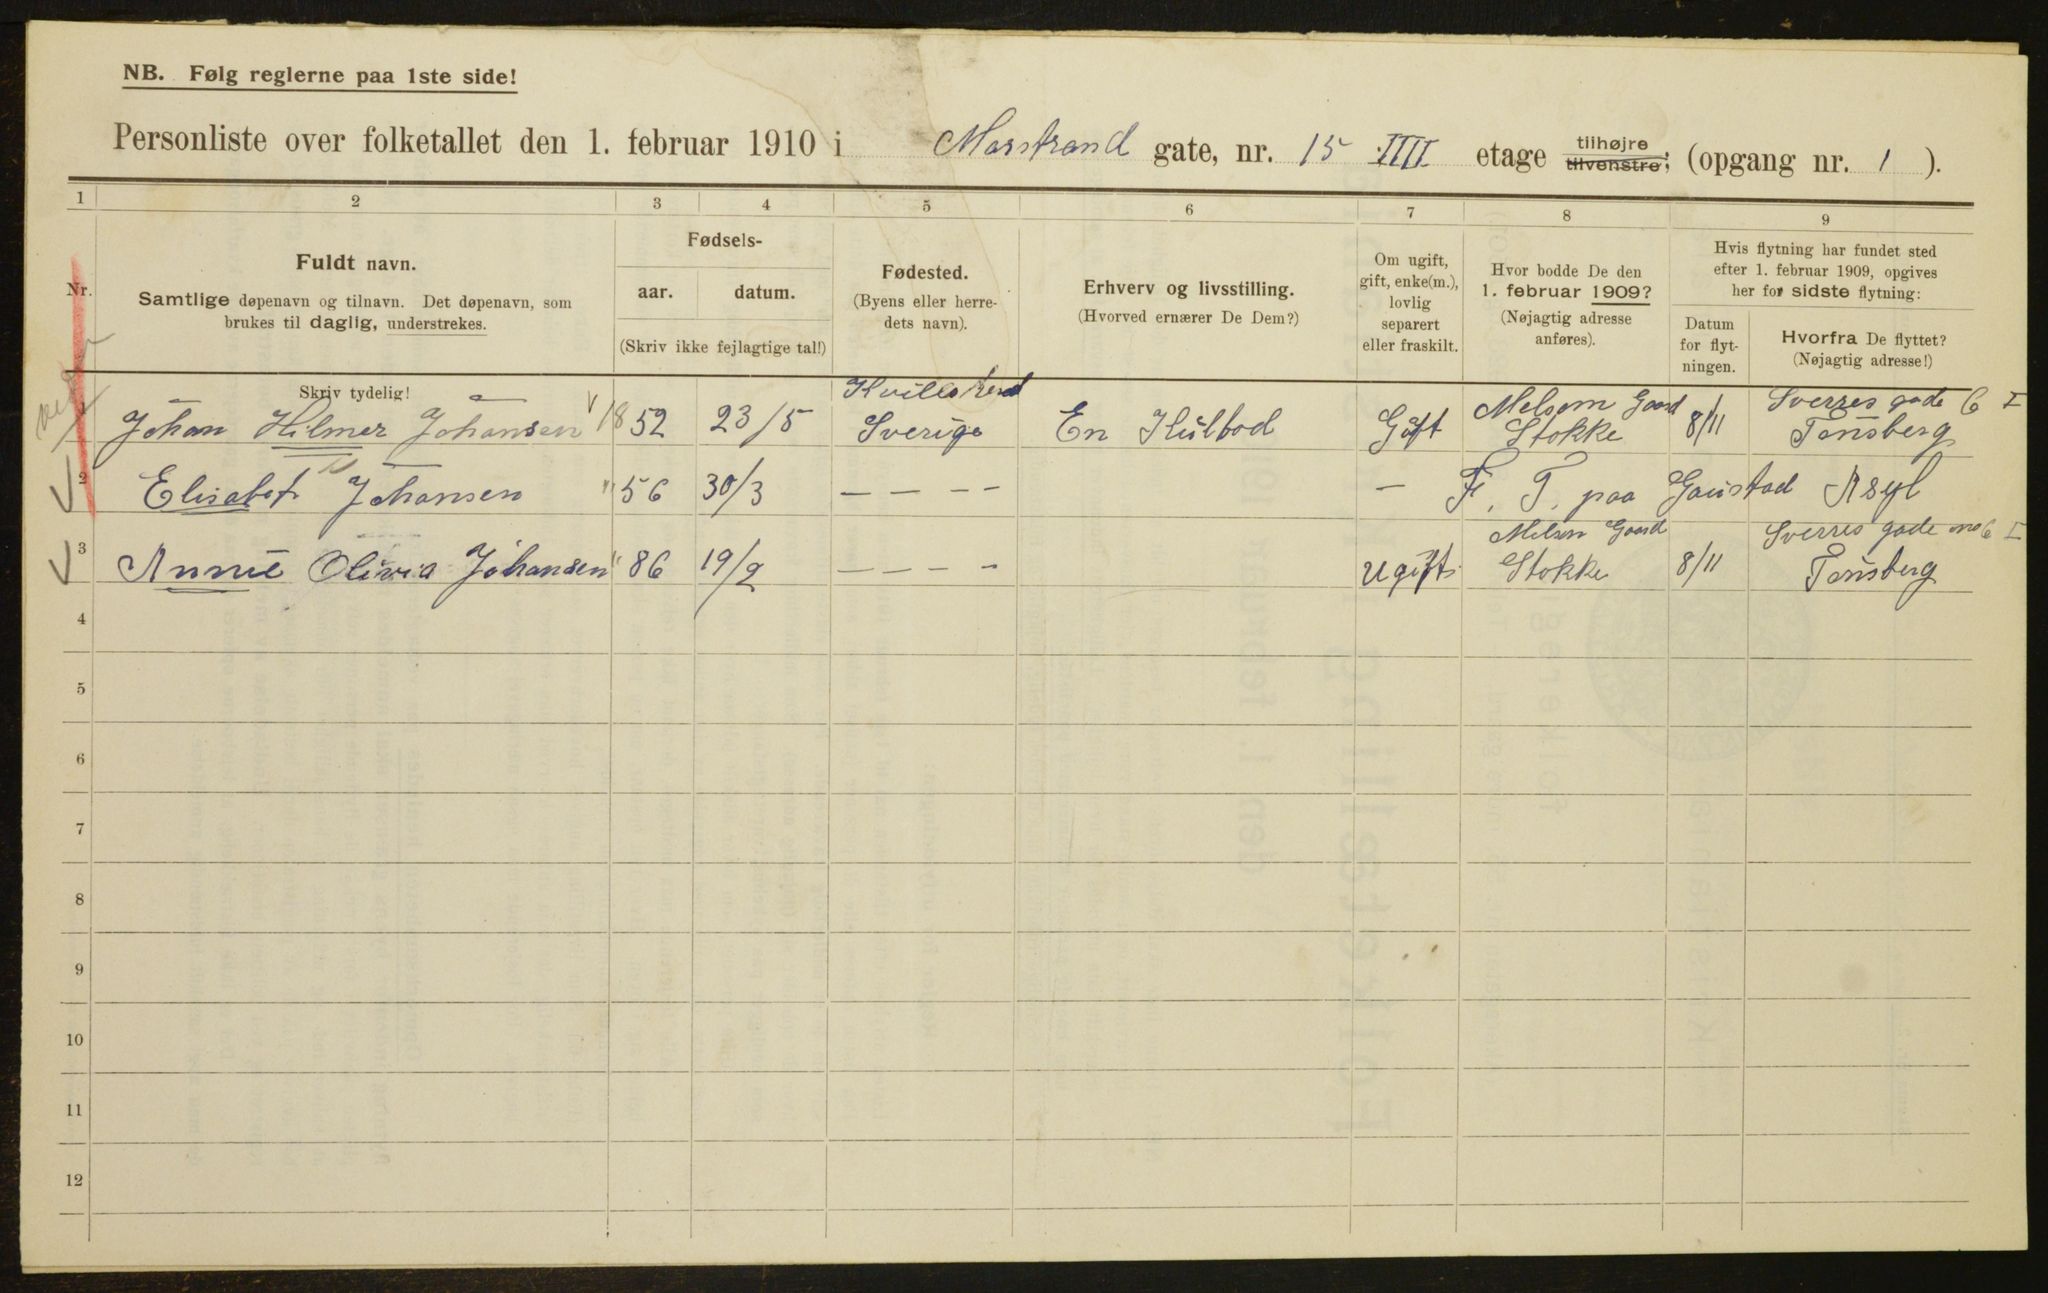 NB. Følg reglerne paa 1ste side!
Personliste over folketallet den 1. februar 1910 i Marstrand gate, nr. 15 IIII etage tilhøjre, tilvenstre, (opgang nr. 1 ).
1 2 3 4 5 6 7 8 9
Nr.
Fuldt navn.
Samtlige døpenavn og tilnavn. Det døpenavn, som
brukes til daglig, understrekes.
Skriv tydelig!
Fødsels-
aar. datum.
(Skriv ikke fejlagtige tal!)
Fødested.
(Byens eller herre-
dets navn).
Erhverv og livsstilling.
(Hvorved ernærer De Dem?)
Om ugift,
gift, enke(m.),
lovlig
separert
eller fraskilt.
Hvor bodde De den
1. februar 1909?
(Nøjagtig adresse
anføres).
Hvis flytning har fundet sted
efter 1. februar 1909, opgives
her for sidste flytning:
Datum
for flyt-
ningen.
Hvorfra De flyttet?
(Nøjagtig adresse!)
Kville Melsom Gaard Sverres gade 6 I
1 Johan Hilmer Johansen 1852 23/5 Sverige En Kulbod Gift Stokke 8/11 Tønsberg
2 Elisabet Johansen " 56 30/3 — — — — — F. T. paa Gaustad Asyl
Melsen Gaard Sverres gade no 6 I
3 Annie Olivia Johansen " 86 19/2 — — — — Ugift Stokke 8/11 Tønsberg
4
5
6
7
8
9
10
11
12